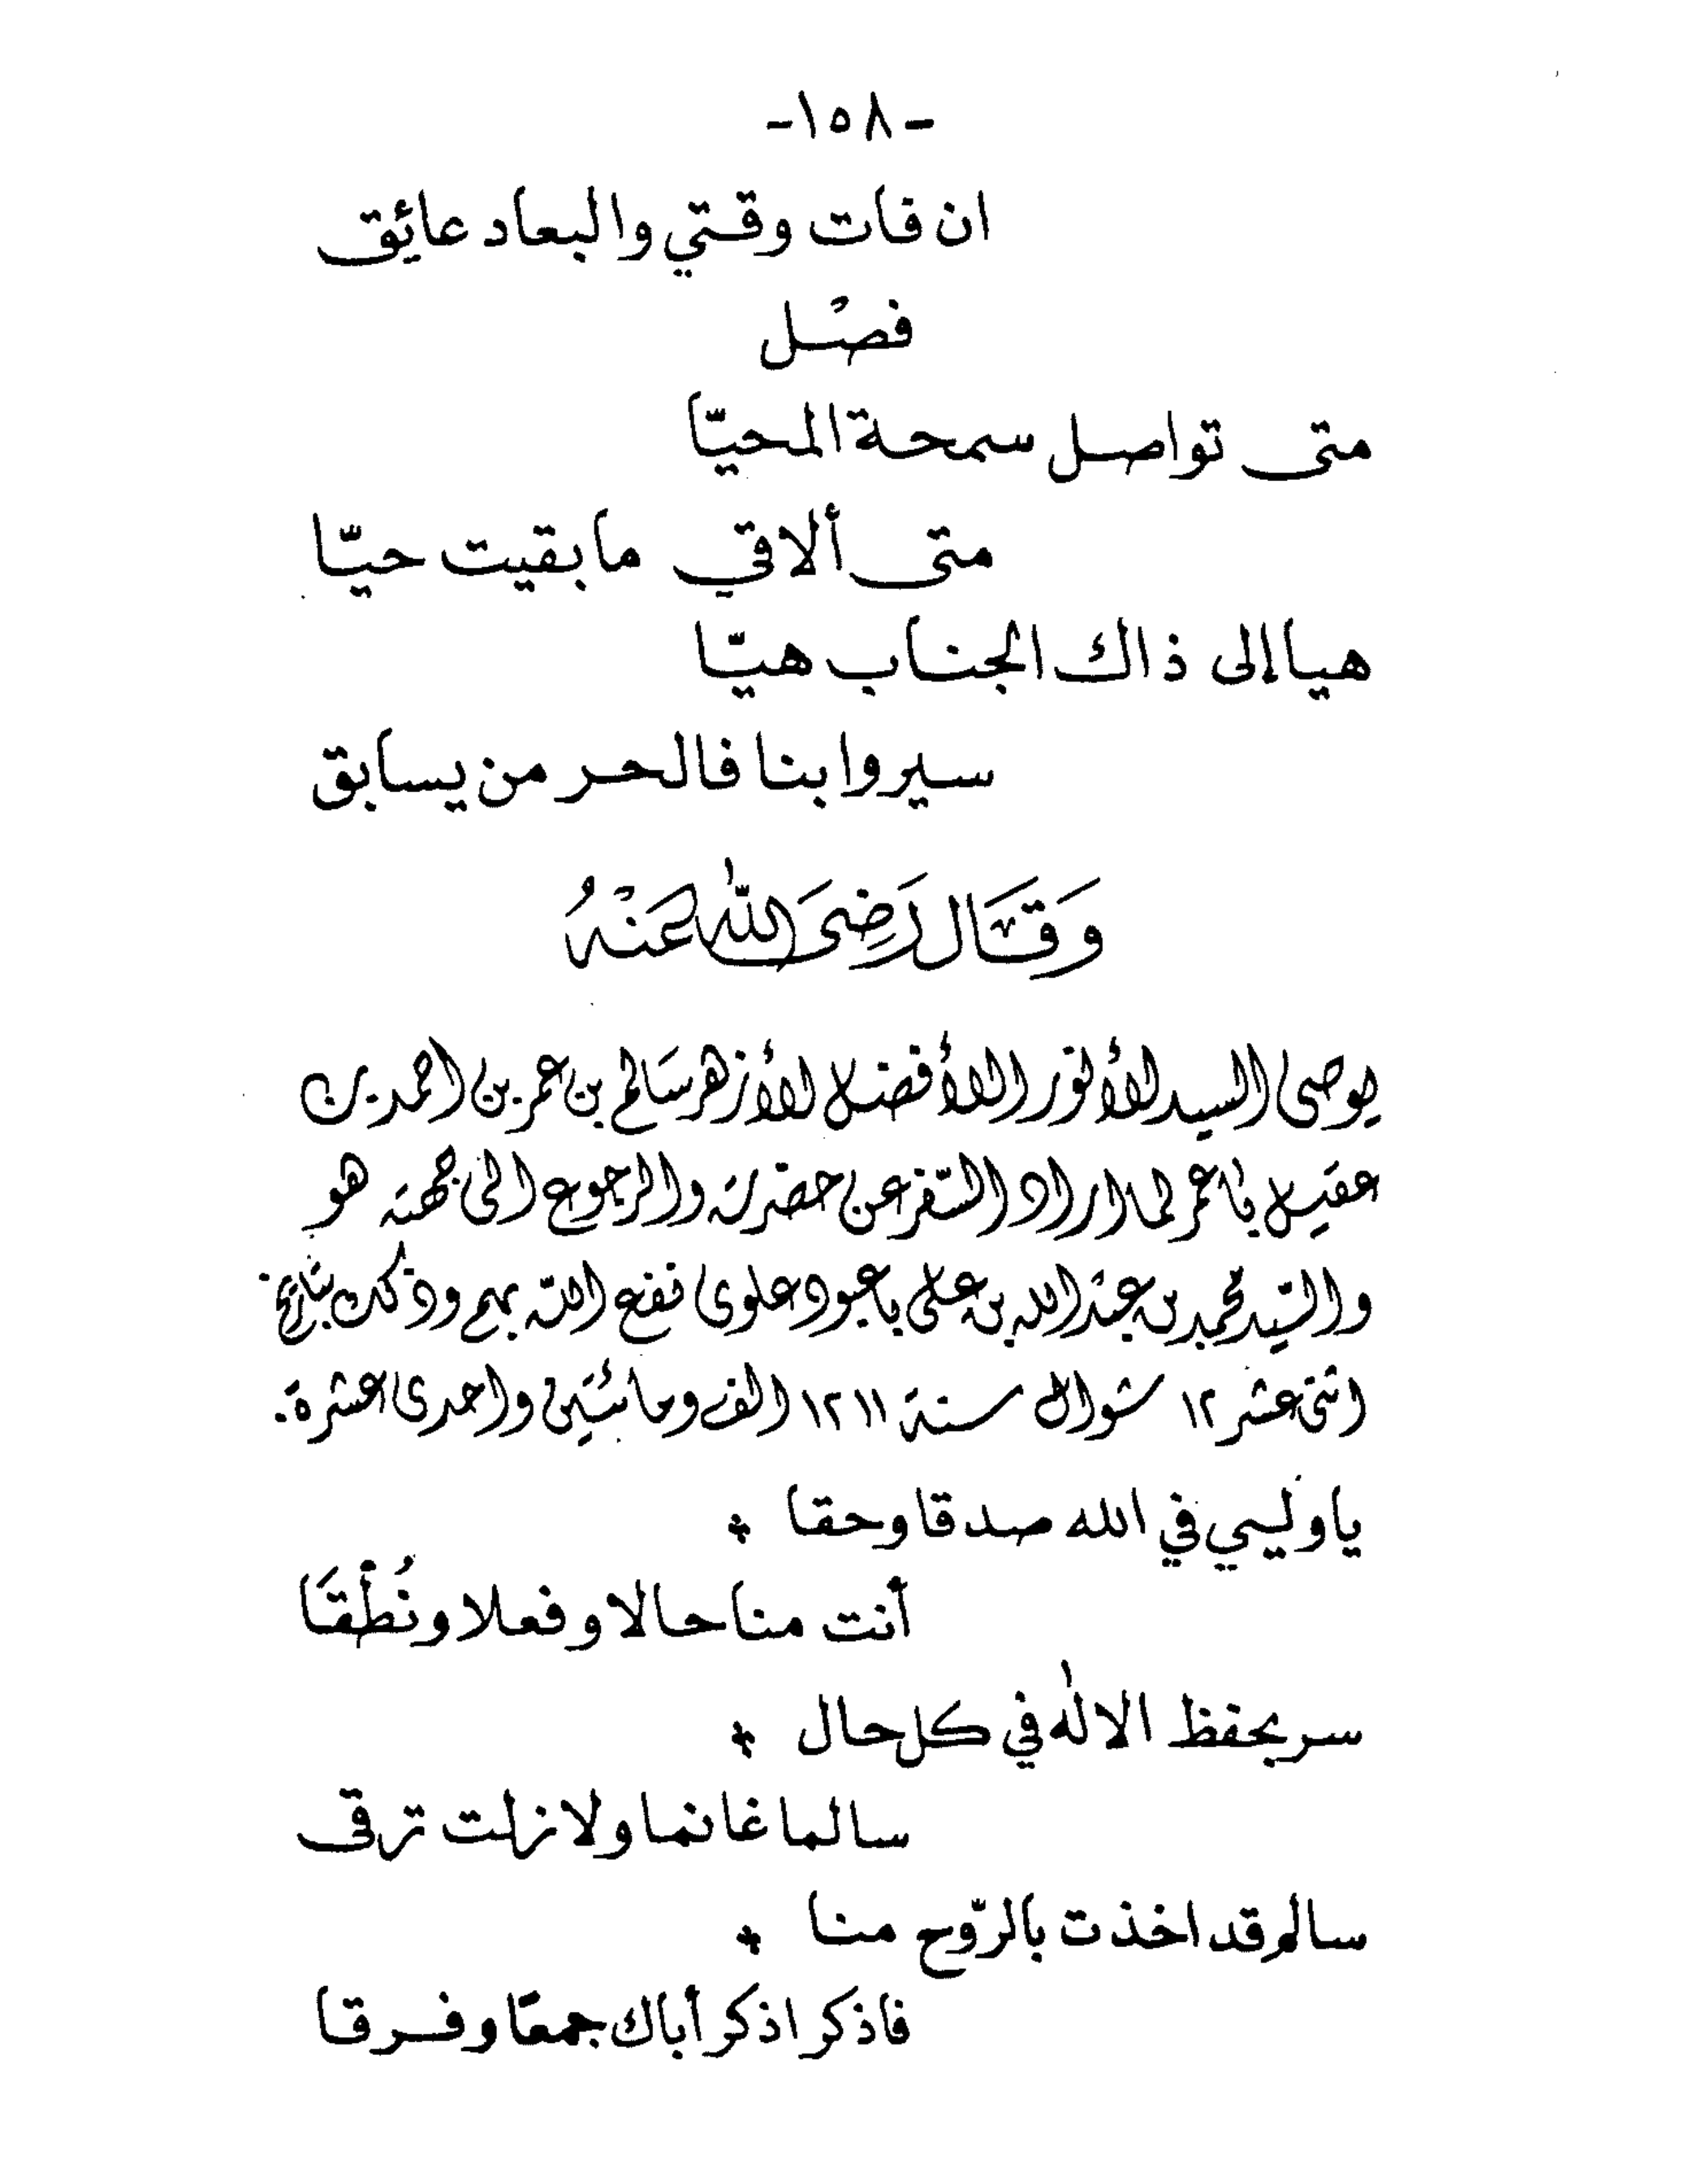 -١٥٨-
ان فات وقتي والبعاد عائق
فصْل
متى تواصل سمحة المحيّا
متى ألاقي مابقيت حيّا
هيا إلى ذاك الجناب هيّا
سيروا بنا فالحر من يسابق
وَقَال رَضِىَ اللّٰه عَنْهُ
يوصى السيد الأنور الأفضل الأزهر سَالم بن عمر بن احمد بن
عقيل باعمر لما اراد السّفر عن حضرته والرجوع الى جهته هو
والسّيد محمد بن عبْد الله بن على باعبود علوى نفع اللّه بهم وذلك بتاريخ
اثنى عشر ١٢ شوال سنة ١٢١١ الف ومائتَين واحدى عشرة.
ياوليي في الله صدقا وحقا *
أنت منا حالا وفعلا ونُطْقَا
سر بحفظ الالٰه في كل حال *
سالما غانما ولا زلت ترقى
سالم قد اخذت بالرّوح منا *
فاذكر اذكر أباك جمعًا وفرقا